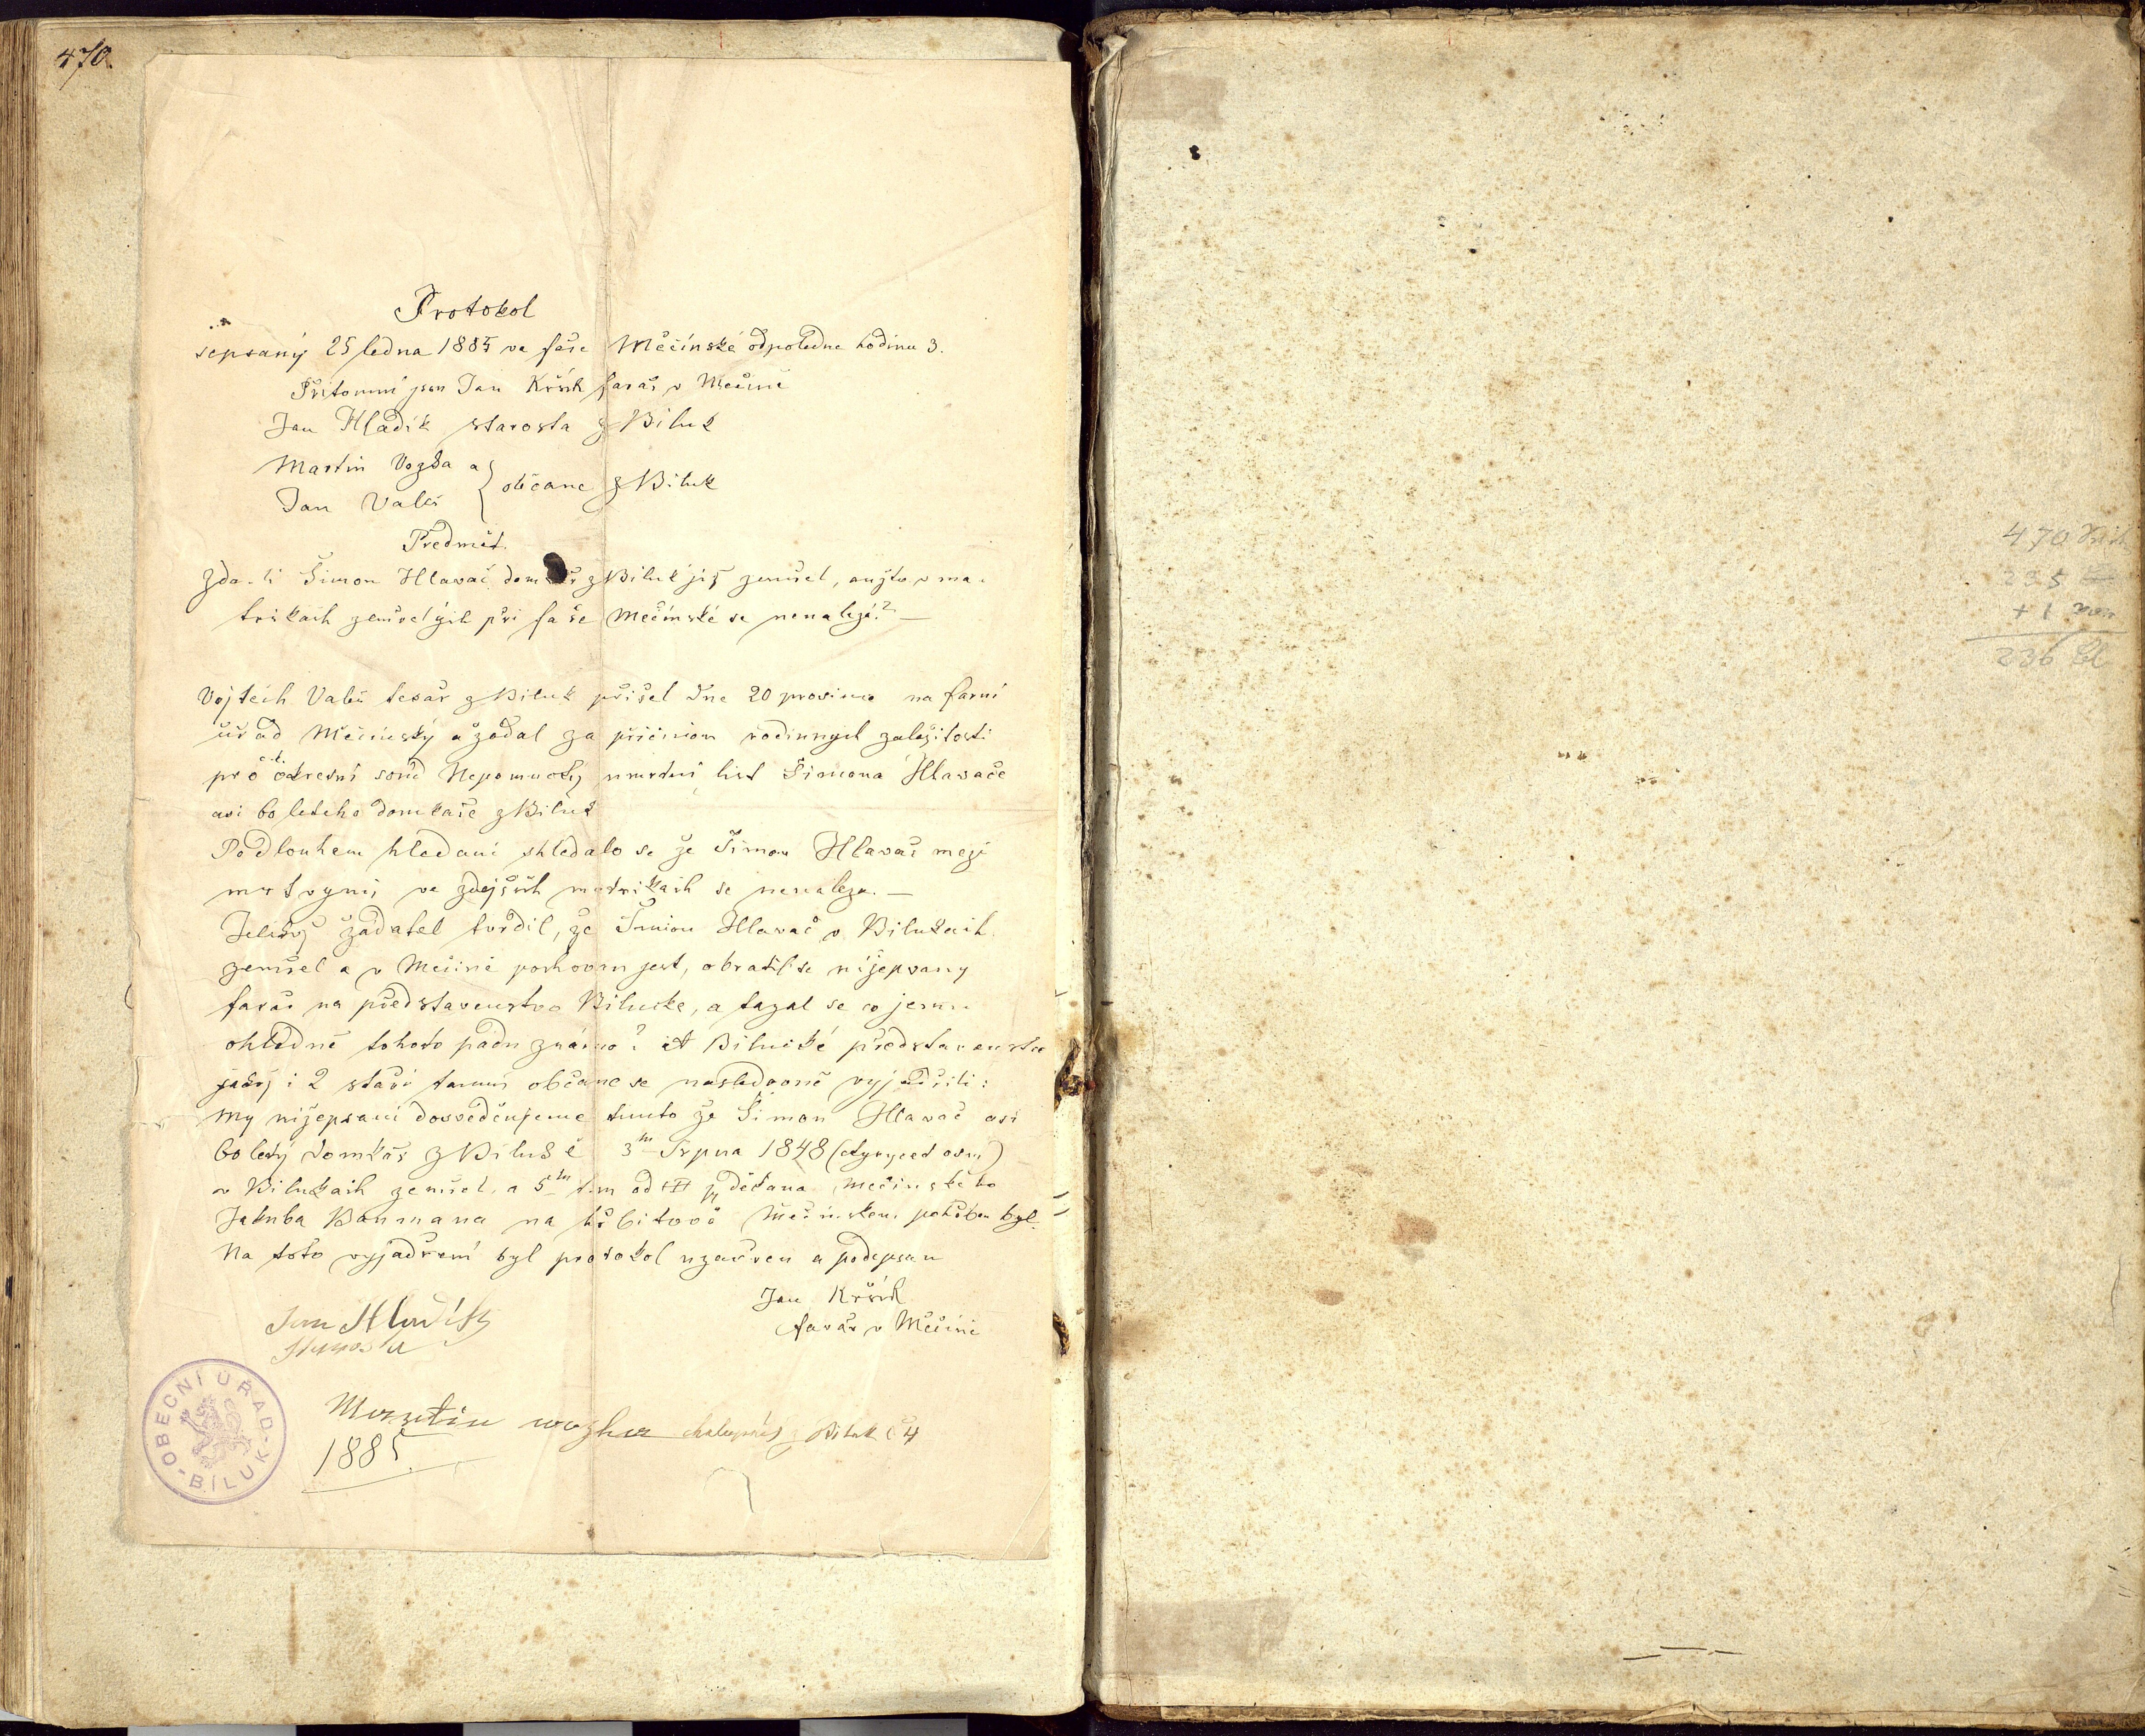 470.
Protokol
sepsaný 25 ledna 1885 ve faře Měčínské odpoledne hodinu 3.
Přitomní jsou Jan Kršik farář v Mečíně
Jan Hladík starosta z Biluk
Martin Vozka a
Jan Valeš } občane z Biluk
Předmět.
Zda-li Šimon Hlavač domkář z Biluk již zemřel, anžto v ma-
trikach zemřelých při faře Mečínské se nenalezá? —
Vojtěch Valeš tesař z Biluk přišel dne 20 prosince na farní
úřad Mečínský a žádal za přičinou rodinnych zaležitosti
pro c.k. okresní soud Nepomucký umrtní list Šimona Hlavače
asi 60 letého domkaře z Biluk
Po dlouhem hledani shledalo se že Šimon Hlavač mezi
mrtvymi ve zdejších matrikach se nenaleza. —
Jelikož žádatel tvrdil, že Šimon Hlavač v Bilukách
zemřel a v Mečíně pochovan jest, obratil se nížepsany
farář na představenstvo Bilucke, a tazal se co jemu
ohledně tohoto padu známo? A Bilucké představenstvo
jakož i 2 staří tamní občane se nasledovně vyjadřili:
My nižepsaní dosvědčujeme tímto že Šimon Hlavač asi
60 letý domkař z Biluk č 3ho Srpna 1848 (čtyrycet osm)
v Bilukach zemřel, a 5ho tm od p děkana Mečínského
Jakuba Baumana na hřbitově Mečínskem pohřben byl.
Na toto vyjadření byl protokol uzavřen a podepsan
Jan Kršik
farář v Mečíně
Jan Hladík
Starosta
OBECNÍ ÚŘAD - BÍLUK -
Martin wozka chalupník z Biluk č 4
1885.
470
235
+ 1
236